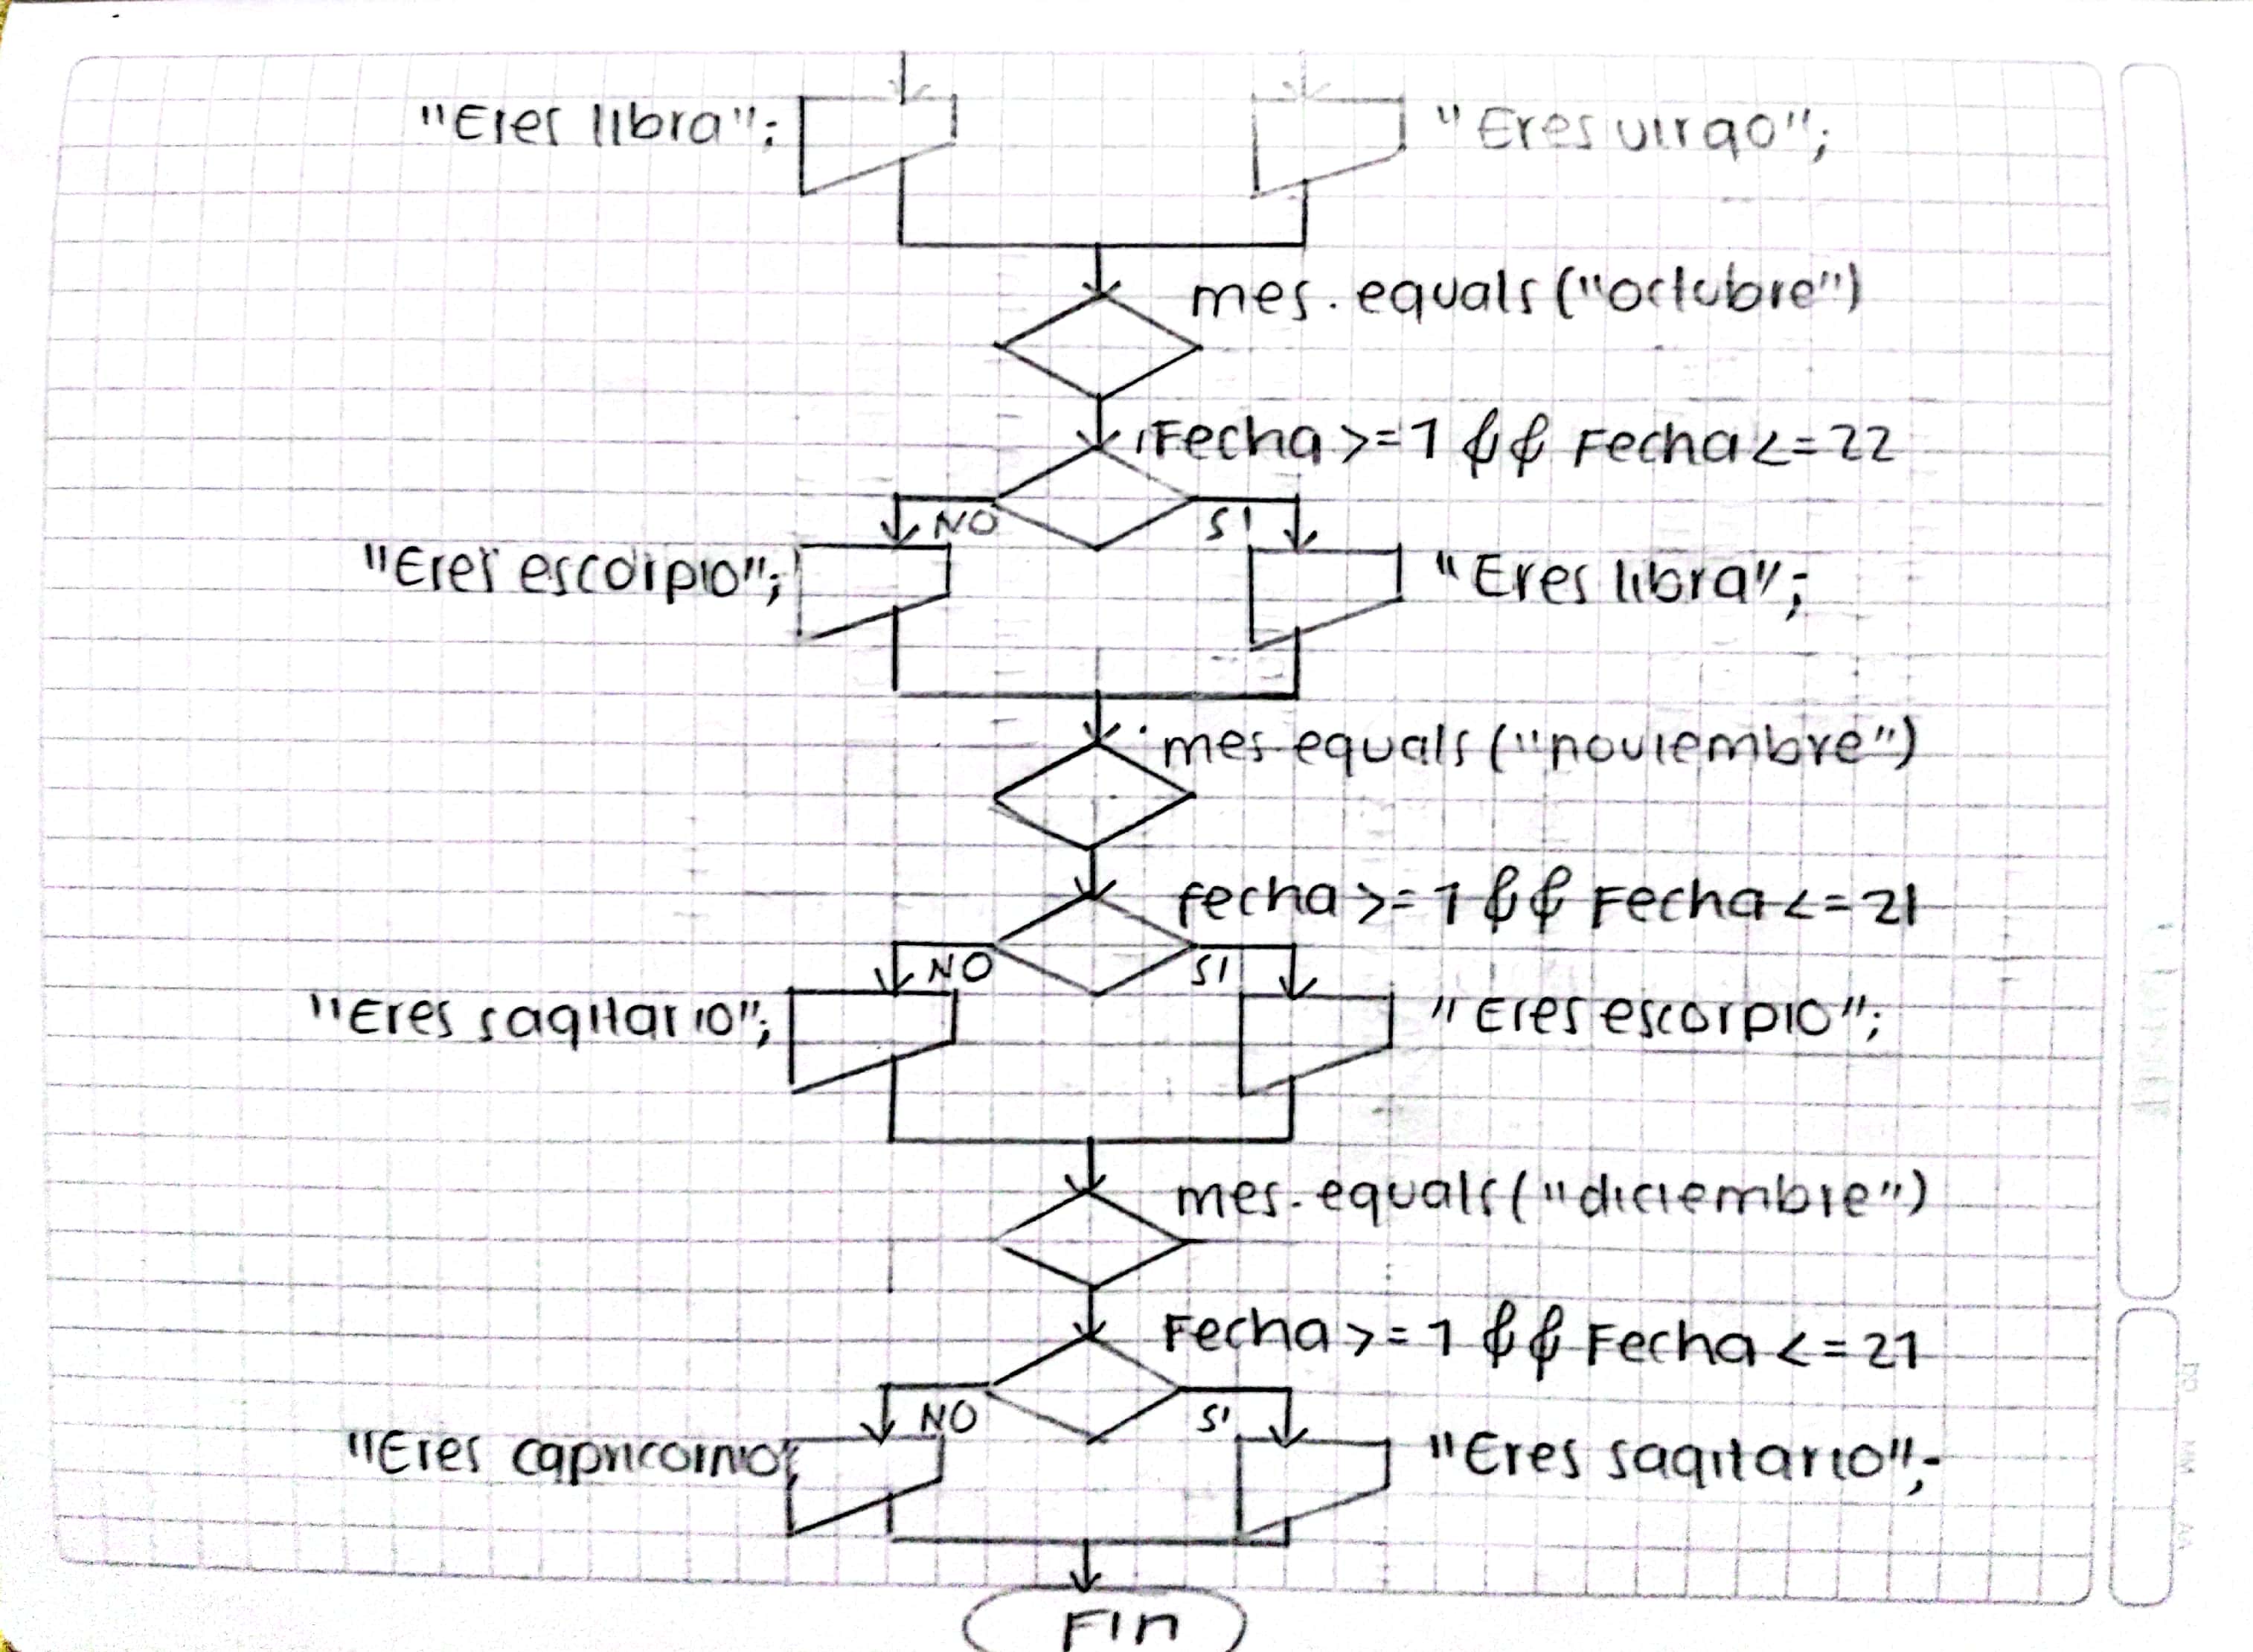 "Eres libra"; "Eres virgo";
mes.equals("octubre")
Fecha >= 1 && Fecha <= 22
NO SI
"Eres escorpio"; "Eres libra";
mes equals ("noviembre")
fecha >= 1 && Fecha <= 21
NO SI
"Eres sagitario"; "Eres escorpio";
mes.equals("diciembre")
Fecha >= 1 && Fecha <= 21
NO SI
"Eres capricornio"; "Eres sagitario";
Fin